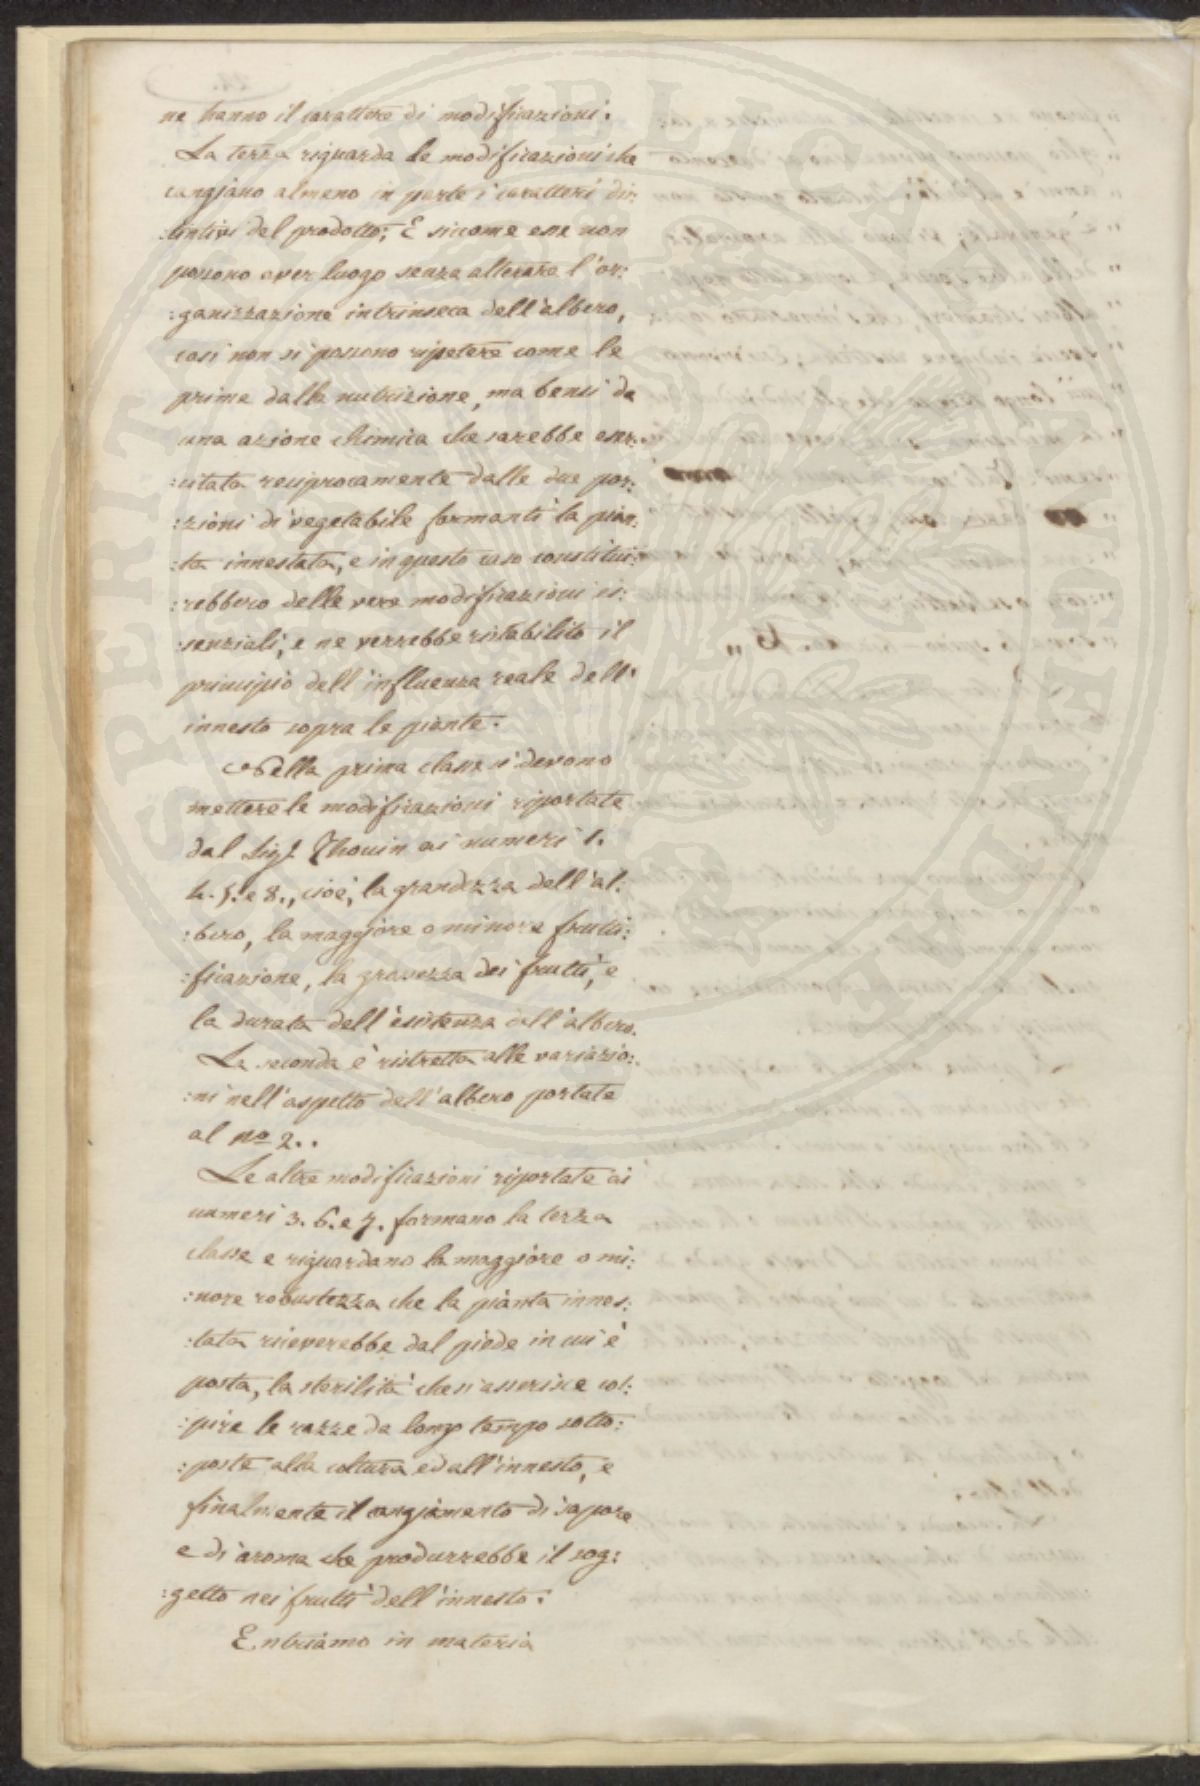 ne hanno il carattere di modificazioni.
La terza riguarda le modificazioni che
cangiano almeno in parte i caratteri dis:
:tintivi del prodotto; E siccome esse non
possono aver luogo senza alterare l'or:
:ganizzazione intrinseca dell'albero,
così non si possono ripetere come le
prime dalla nutrizione, ma bensì da
una azione chimica che sarebbe eser:
:citata reciprocamente dalle due por:
:zioni di vegetabile formanti la pian:
:ta innestata, e in questo caso constitui:
:rebbero delle vere modificazioni es:
:senziali, e ne verrebbe ristabilito il
principio dell'influenza reale dell'
innesto sopra le piante.
Nella prima classe si devono
mettere le modificazioni riportate
dal Sigr. Thouin ai numeri 1.
4. 5. e 8., cioè, la grandezza dell'al:
:bero, la maggiore o minore frutti:
:ficazione, la grossezza dei frutti, e
la durata dell'esistenza dell'albero.
La seconda è ristretta alle variazio:
:ni nell'aspetto dell'albero portate
al no 2..
Le altre modificazioni riportate ai
numeri 3. 6. e 7. formano la terza
classe e riguardano la maggiore o mi:
:nore robustezza che la pianta innes:
:tata riceverebbe dal piede in cui è
posta, la sterilità che s'asserisce col:
:pire le razze da longo tempo sotto:
:poste alla coltura ed all'innesto, e
finalmente il cangiamento di sapore
e di aroma che produrrebbe il sog:
:getto nei frutti dell'innesto.
Entriamo in materia